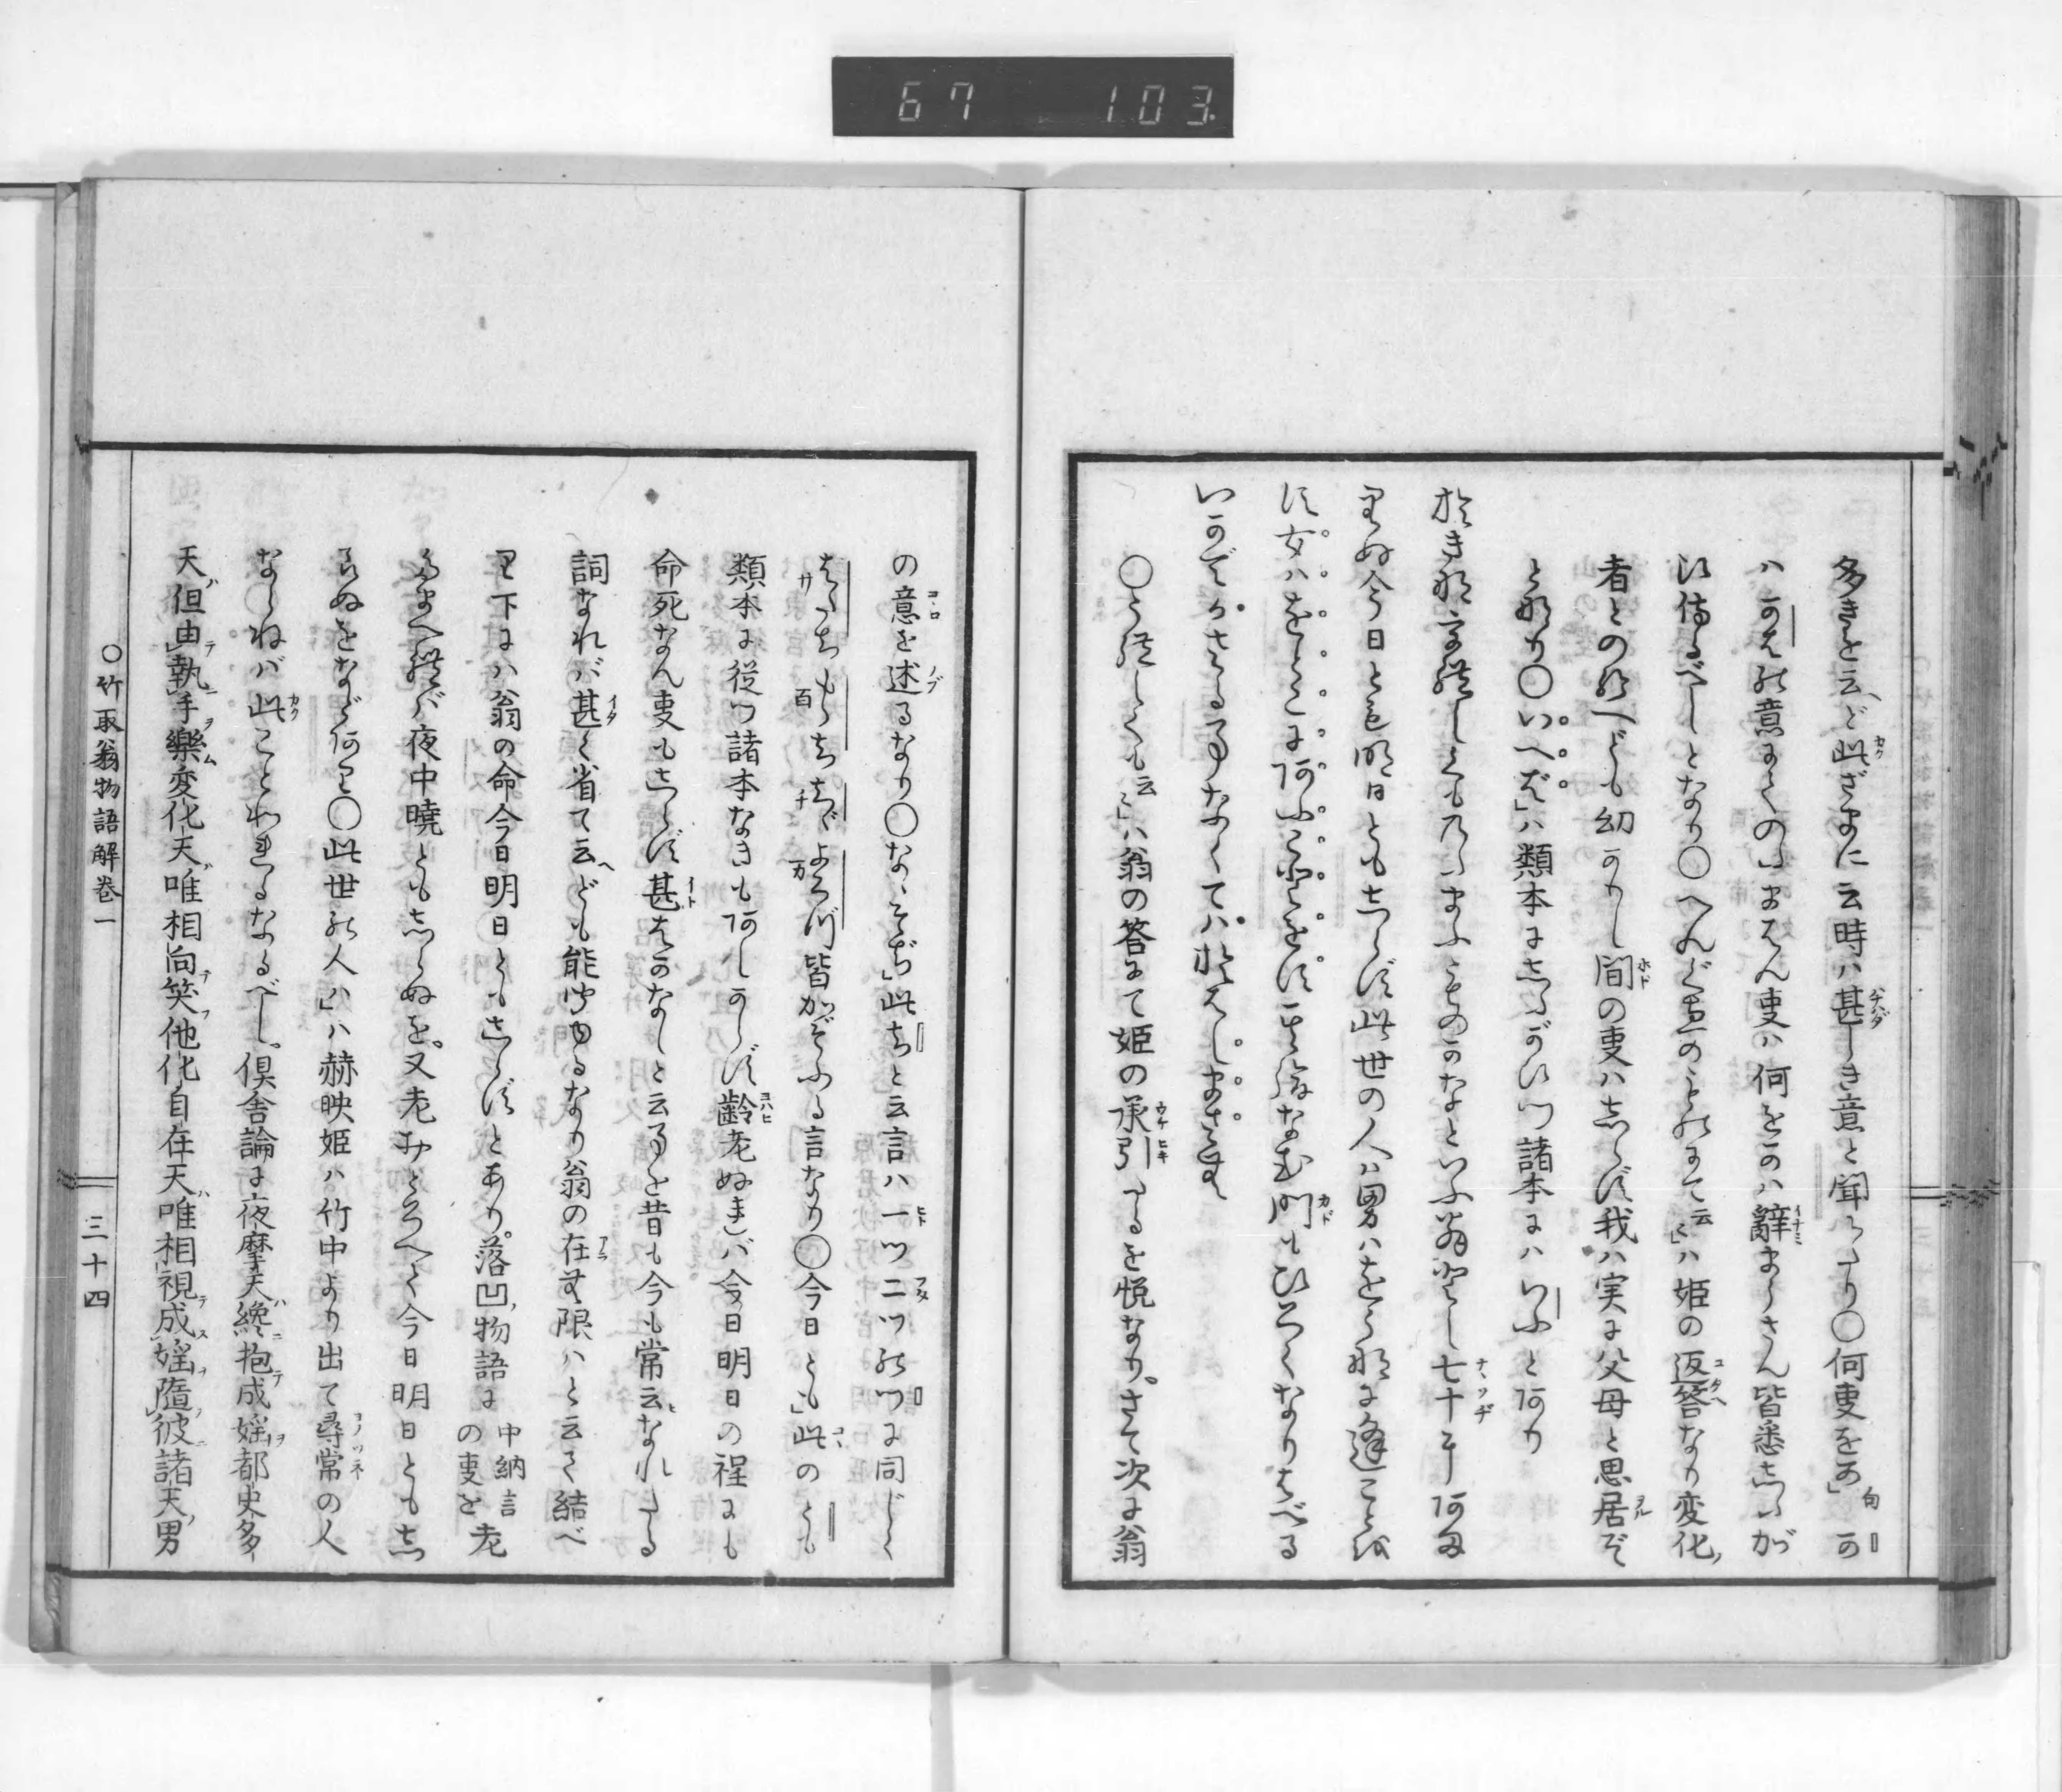 67 103
多きを云ど此ざまに云時ハ甚しき意と聞ゆるなり〇何事をか
ハかはの意にてのたまはん事ハ何をかハ辭まうさん皆悉したが
ひ侍るべしとなり〇へんぐゑのものにて云々ハ姫の返答なり変化
者とのたまへども幼かりし間の事ハしらず我ハ実に父母と思居ぞ
となり〇いへば」ハ類本にしたがひつ諸本にハいふとあり
おきなうれしくものたまふものかなといふ翁年七十にあま
りぬ今日とも明日ともしらず此世の人ハ男ハをうなに逢ことを
す女ハをとこにあふことをす其後なむ門もひろくなりはべる
いかでかさることなくてハおはしまさむ
〇うれしくも云々」ハ翁の答にて姫の承引たるを悦なり。さて次に翁
の意を述るなり〇なゝそぢ」此ちと云言ハ一ツ二ツのつに同じく
はたちもゝちちぢよろづ皆かぞふる言なり〇今日とも」此のとも
類本に従つ諸本なきもあしからず齢老ぬれバ今日明日の程にも
命死なん事もしらず甚はかなしと云ことを昔も今も常云なれたる
詞なれバ甚く省て云へども能聞ゆるなり翁の在む限ハと云て結べ
り下にハ翁の命今日明日ともしらずとあり。落凹物語に中納言の事を老
たまへれバ夜中暁ともしらぬを。又老おとろへて今日明日ともし
らぬをなどあり〇此世の人ハ」ハ赫映姫ハ竹中より出て尋常の人
ならねバ此ことわれるなるべし。倶舎論に夜摩天纔抱成婬都史多
天但由執手樂変化天唯相向笑他化自在天唯相視成婬隨彼諸天男
〇竹取翁物語解巻一 三十四